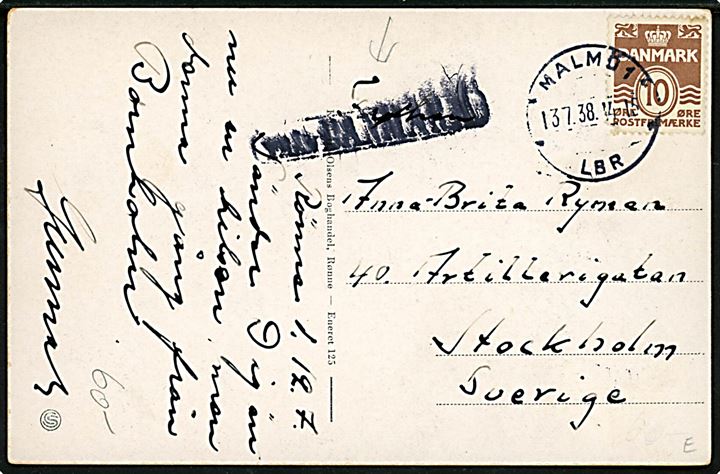 Rönne d. 12.7.
Sänder Dig än
nu en hilsen, men
denna gång från
Bornholm.
60-
Olsens Boghandel, Rønne — Eneret 125
DANMARK
10
ØRE ØRE
POSTFRIMÆRKE
MALMÖ 1
13.7.38.
LBR
Anna-Brita Ryman
40. Artillerigatan
Stockholm
Sverige
E